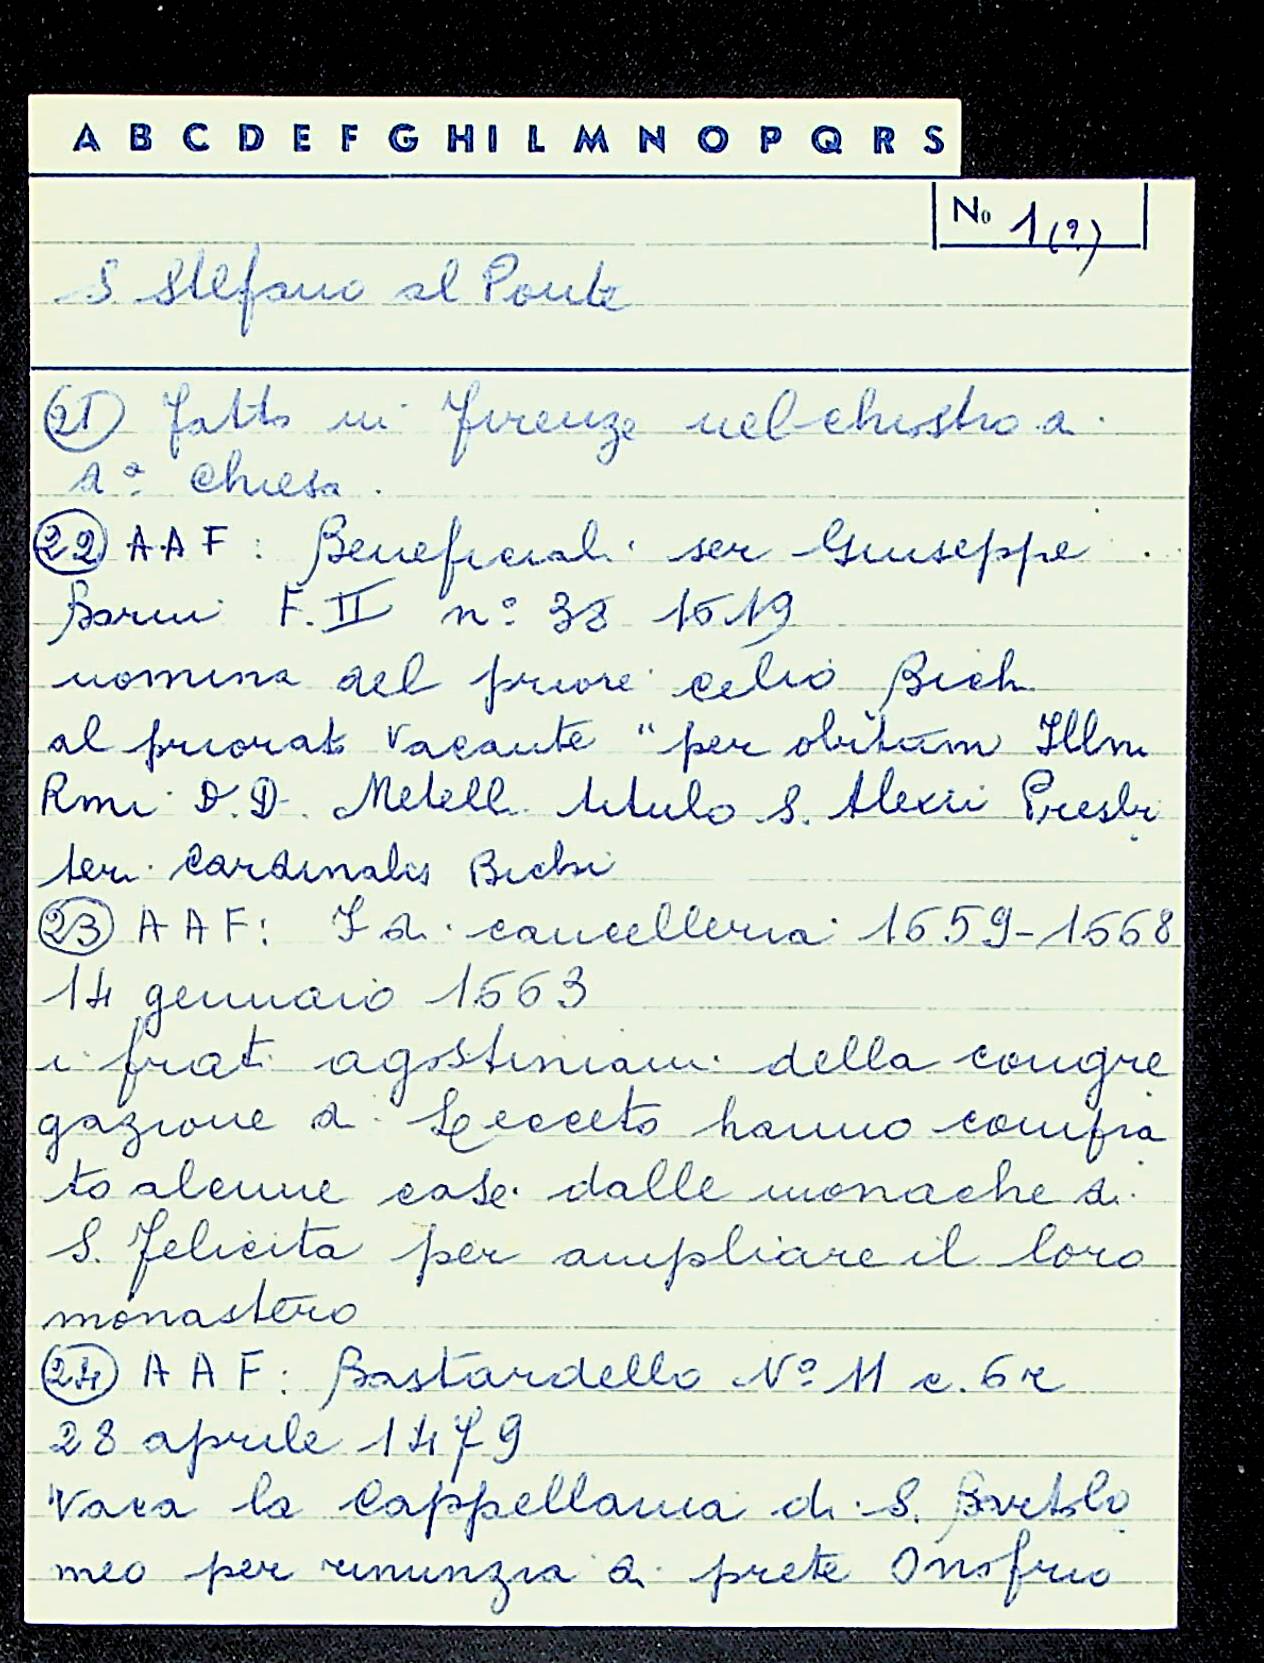 A B C D E F G H I L M N O P Q R S
No 1(9)
S Stefano al Ponte
21) fatto in Firenze nel chiostro di
da chiesa.
22) AAF: Beneficiali ser Giuseppe
Barni F. II n° 38 1619
nomina del priore celio Bichi
al priorato vacante "per obitum Illmi
Rmi D.D. Metelli titulo S. Alexii Presbi
teri Cardinalis Bichi
23) AAF: I di cancelleria 1659-1668
14 gennaio 1663
i frati agostiniani della congre
gazione di Lecceto hanno compra
to alcune case dalle monache di
S. Felicita per ampliare il loro
monastero
24) AAF: Bastardello N° 11 c. 6r
28 aprile 1479
Vaca la Cappellania di S. Bartolo
meo per rinunzia di prete Onofrio